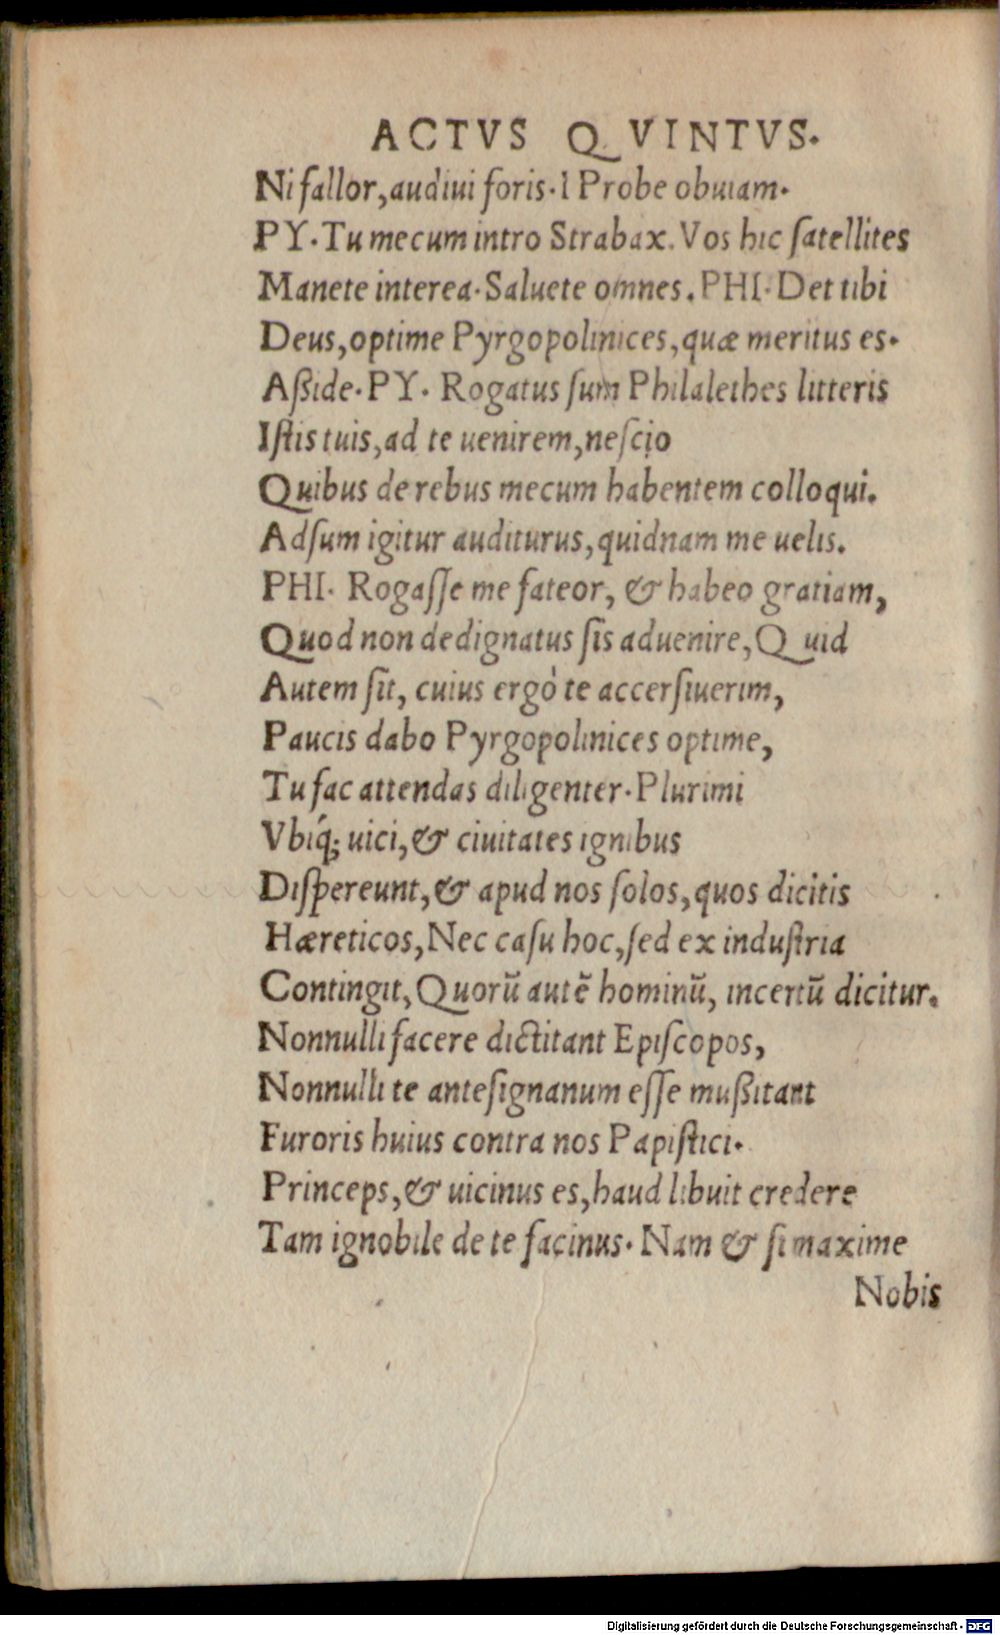 ACTVS QVINTVS.
Ni fallor, audiui foris. I Probe obuiam.
PY. Tu mecum intro Strabax. Vos hic ſatellites
Manete interea. Saluete omnes. PHI. Det tibi
Deus, optime Pyrgopolinices, quæ meritus es.
Aßide. PY. Rogatus ſum Philalethes litteris
Iſtis tuis, ad te uenirem, neſcio
Quibus de rebus mecum habentem colloqui.
Adſum igitur auditurus, quidnam me uelis.
PHI. Rogaſſe me fateor, & habeo gratiam,
Quod non dedignatus ſis aduenire, Quid
Autem ſit, cuius ergò te accerſiuerim,
Paucis dabo Pyrgopolinices optime,
Tu fac attendas diligenter. Plurimi
Vbiq́; uici, & ciuitates ignibus
Diſpereunt, & apud nos ſolos, quos dicitis
Hæreticos, Nec caſu hoc, ſed ex induſtria
Contingit, Quorũ autẽ hominũ, incertũ dicitur.
Nonnulli facere dictitant Epiſcopos,
Nonnulli te anteſignanum eſſe mußitant
Furoris huius contra nos Papiſtici.
Princeps, & uicinus es, haud libuit credere
Tam ignobile de te facinus. Nam & ſi maxime
Nobis
Digitalisierung gefördert durch die Deutsche Forschungsgemeinschaft - DFG